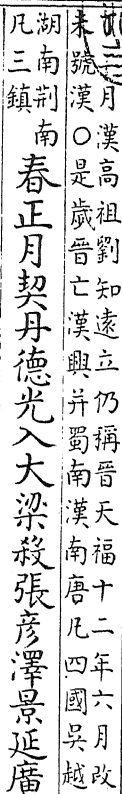 月漢高祖劉知遠立仍稱晉天福十二年六月改
未號漢○是歲晉亡漢興并蜀南漢南唐凡四國吳越
湖南荊南
凡三鎮
春正月契丹德光入大梁殺張彥澤景延廣